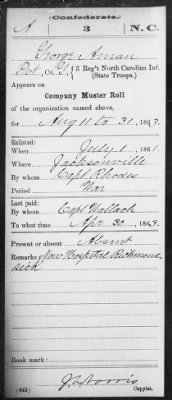 (Confederate.)
A 3 N.C.
George Aman
Pvt, Co. G, 3 Reg't North Carolina Inf.
(State Troops.)
Appears on
Company Muster Roll
of the organization named above,
for Aug 11 to 31, 1863.
Enlisted:
When July 1, 1861.
Where Jacksonville
By whom Capt Rhodes
Period War
Last paid:
By whom Capt Wallach
To what time Apr 30, 1863.
Present or absent Absent
Remarks: Now Hospital Richmond
sick
Book mark:
(642) Copyist.